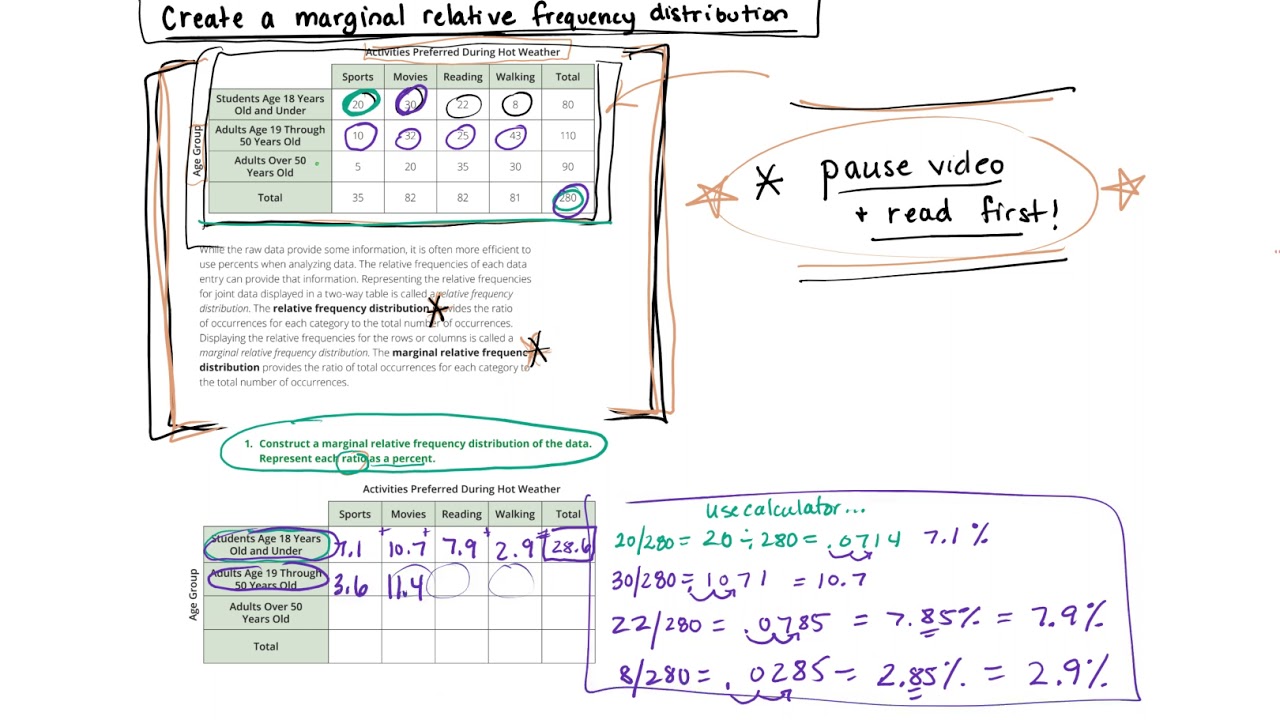 Create a marginal relative frequency distribution
Activities Preferred During Hot Weather
Sports Movies Reading Walking Total
Students Age 18 Years Old and Under 20 30 22 8 80
Adults Age 19 Through 50 Years Old 10 32 25 43 110
Adults Over 50 Years Old 5 20 35 30 90
Total 35 82 82 81 280
Age Group
* pause video
+ read first!
While the raw data provide some information, it is often more efficient to
use percents when analyzing data. The relative frequencies of each data
entry can provide that information. Representing the relative frequencies
for joint data displayed in a two-way table is called a relative frequency
distribution. The relative frequency distribution provides the ratio
of occurrences for each category to the total number of occurrences.
Displaying the relative frequencies for the rows or columns is called a
marginal relative frequency distribution. The marginal relative frequenc
distribution provides the ratio of total occurrences for each category to
the total number of occurrences.
1. Construct a marginal relative frequency distribution of the data.
Represent each ratio as a percent.
Activities Preferred During Hot Weather
Sports Movies Reading Walking Total
Students Age 18 Years Old and Under 7.1 + 10.7 + 7.9 + 2.9 = 28.6
Adults Age 19 Through 50 Years Old 3.6 11.4
Adults Over 50 Years Old
Total
Age Group
use calculator...
20/280 = 20 ÷ 280 = .0714 7.1%
30/280 = .1071 = 10.7
22/280 = .0785 = 7.85% = 7.9%
8/280 = .0285 = 2.85% = 2.9%